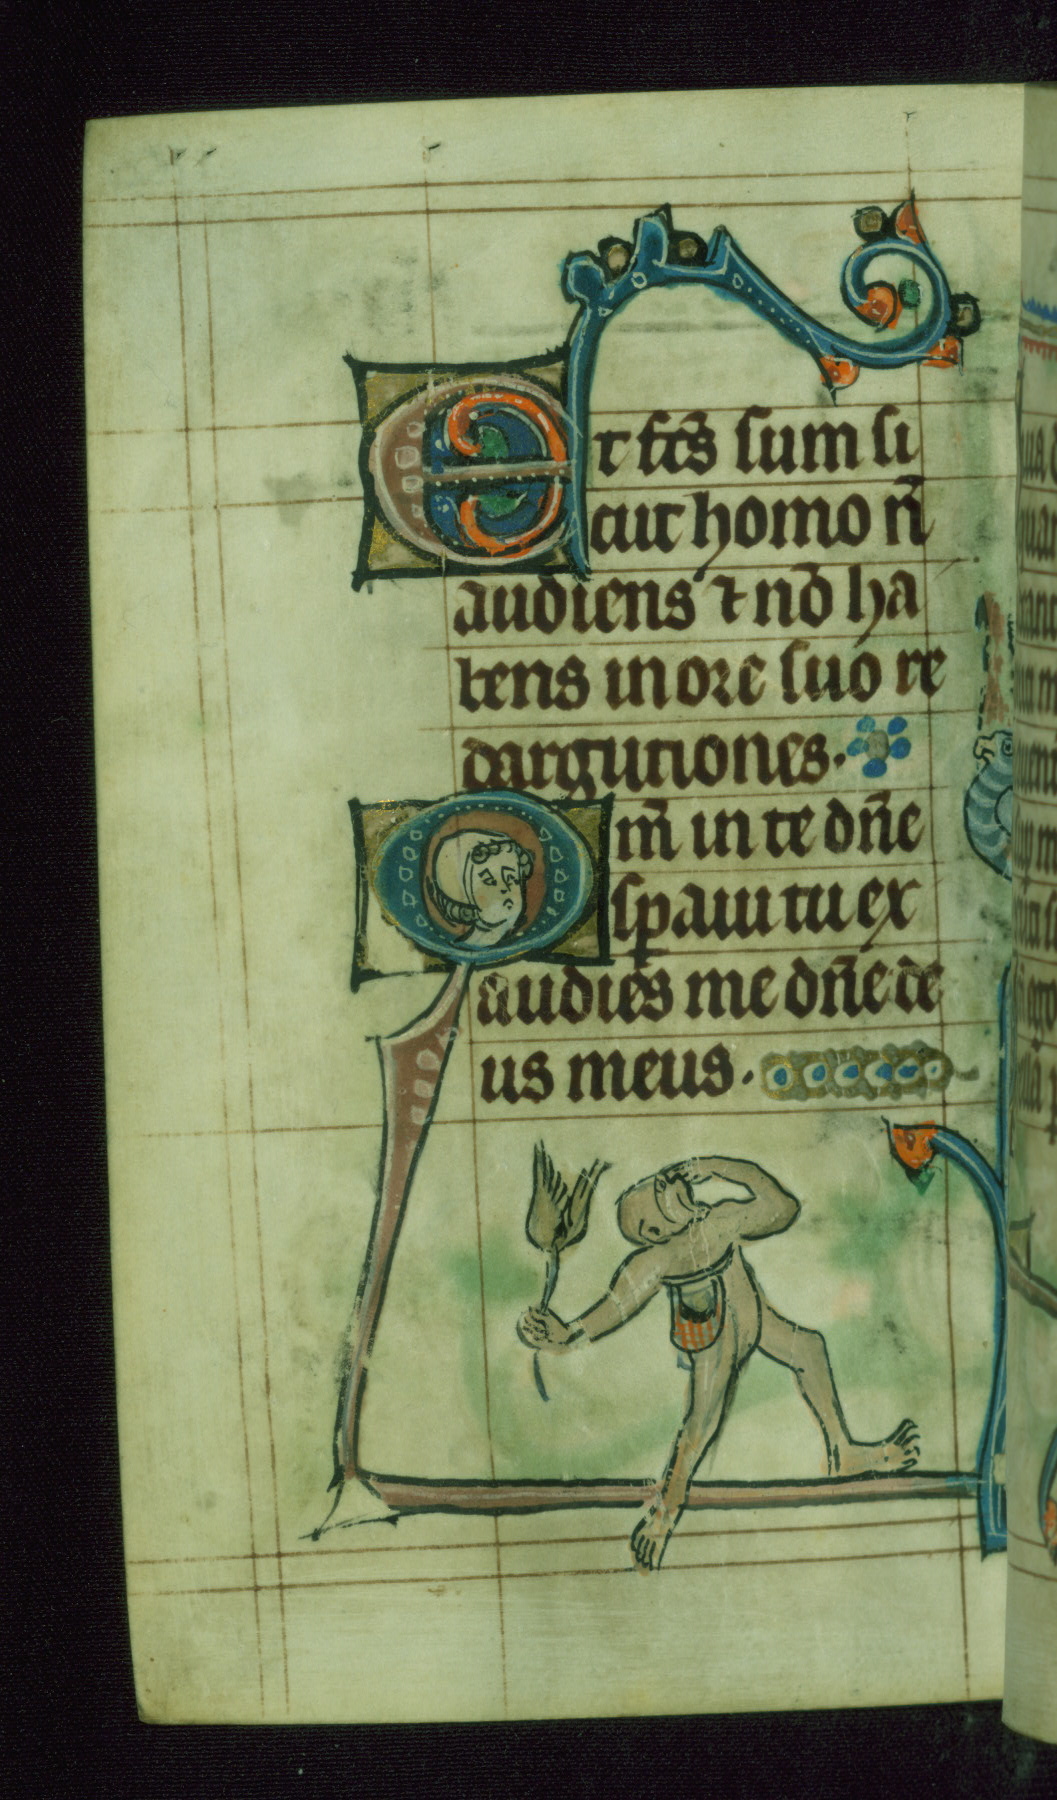 Et fc̄s sum si
cut homo n̄
audiens ⁊ nō ha
bens in ore suo re
dargutiones.
Qm̄ in te dn̄e
sꝑaui tu ex
audies me dn̄e de
us meus.